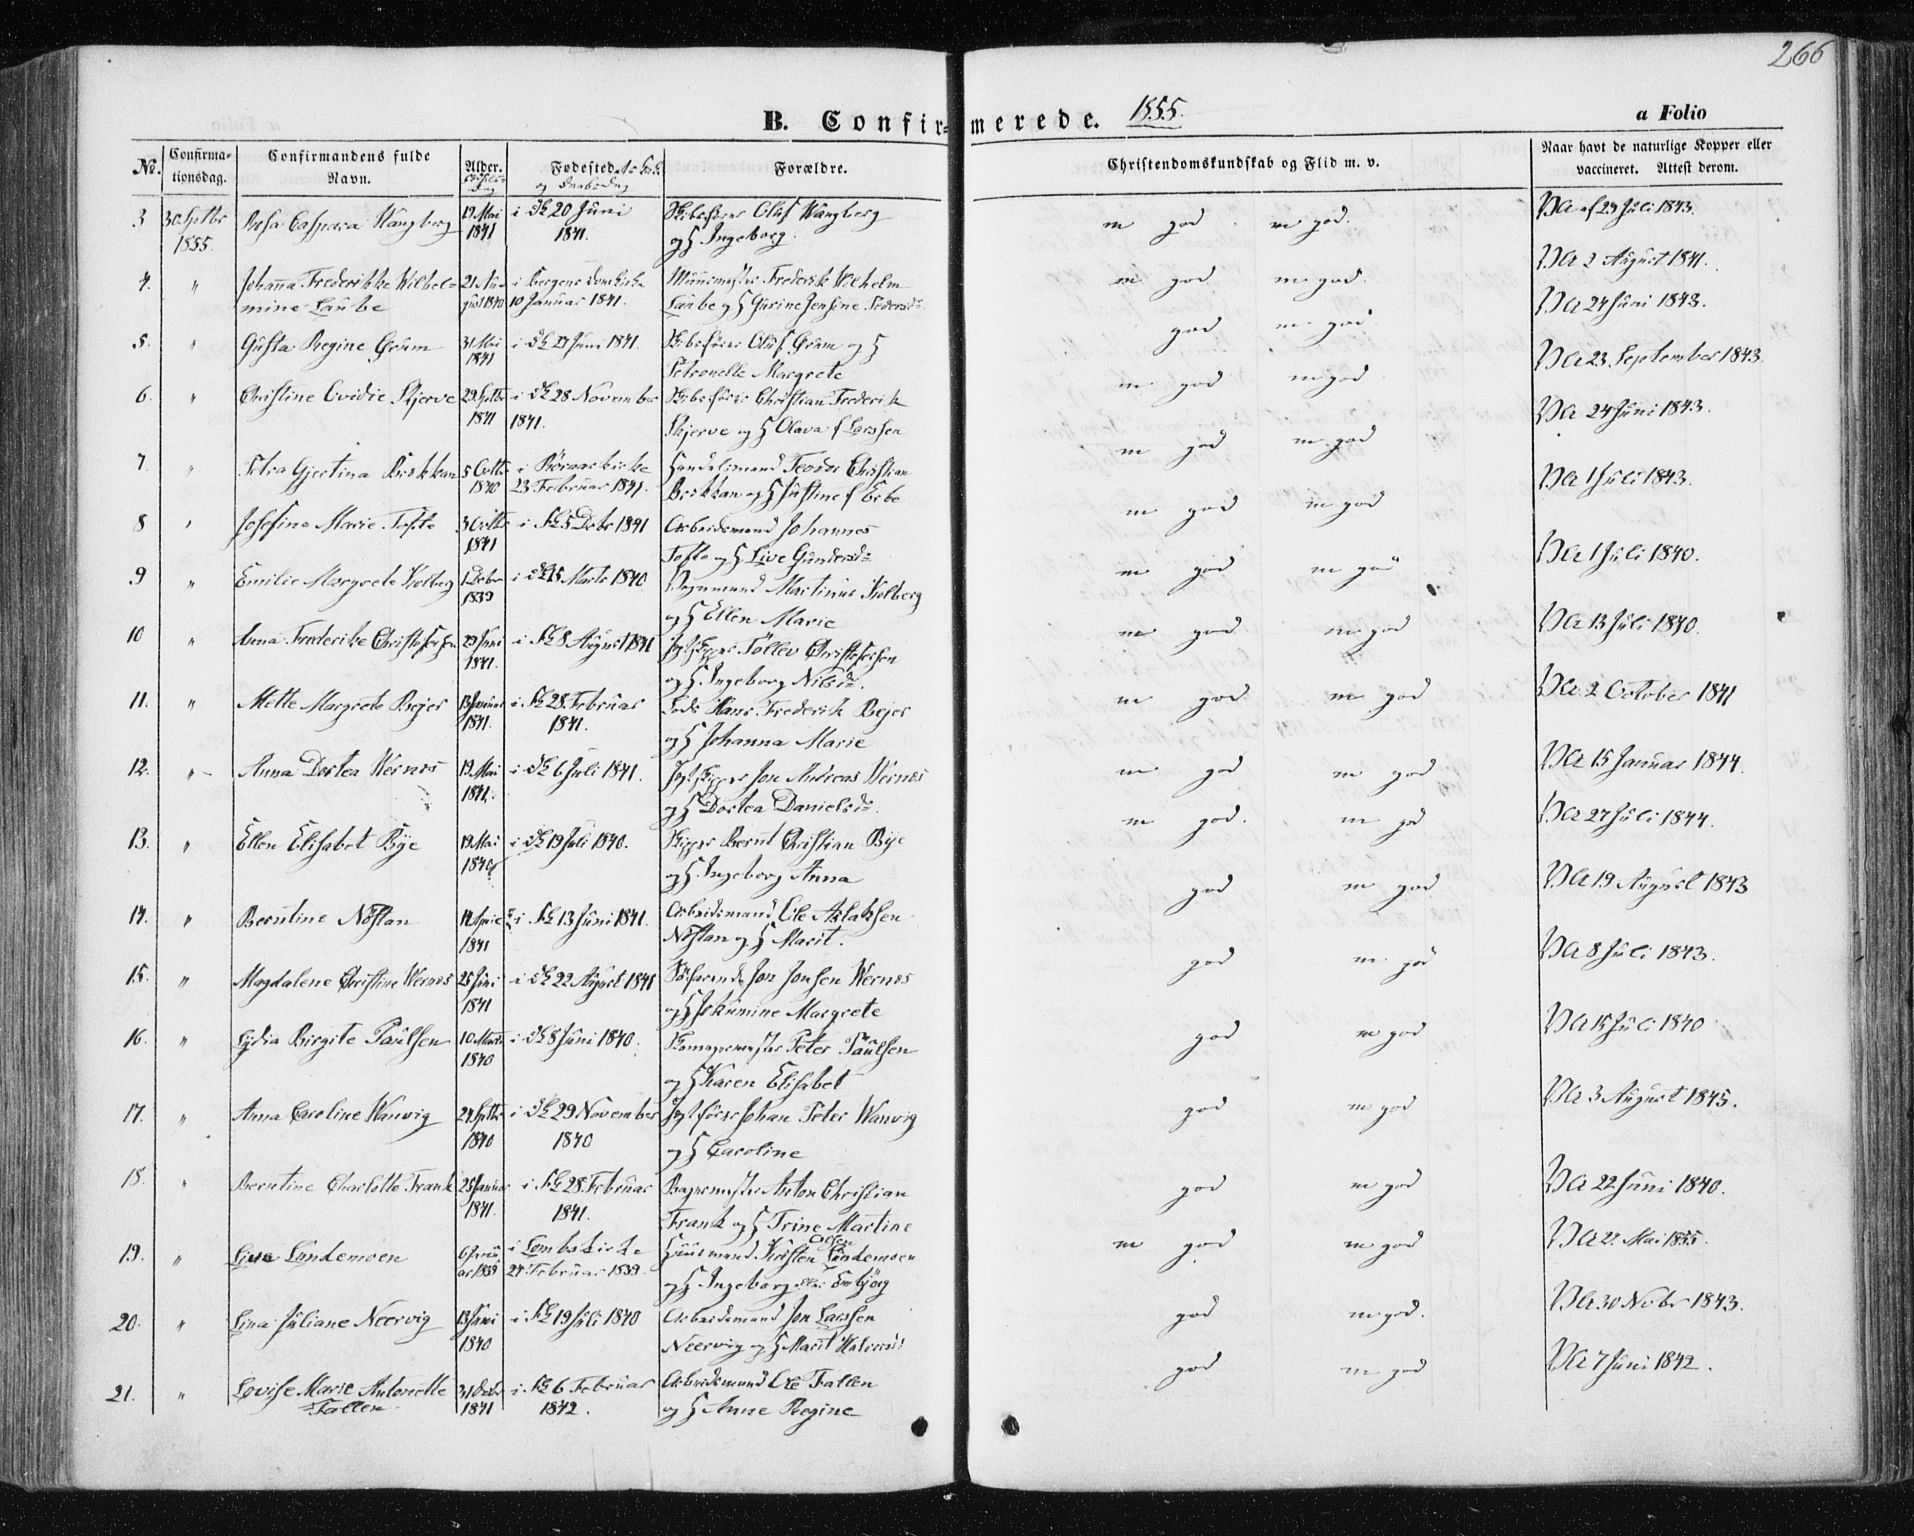 266
B. Confirmerede. 1855. a Folio
No. Confirmationsdag. Confirmandens fulde Navn. Alder. Fødested og Daabsdag Forældre. Christendomskundskab og Flid m. v. Naar havt de naturlige Kopper eller vaccineret. Attest derom.
3 30 Septbr 1855. Caspara Wangberg 19 Mai 1841 i 20 Juni 1841. Oluf Wangberg og H Ingeborg. m god m god. Va af 29 Juli 1843.
4. " Johanna Frederikke Wilhelmine Laube 21 August 1840 i Bergens Domkirke 10 Januar 1841. Muurmester Frederik Wilhelm Laube og H Gurine Jensine Pedersd. m god m god. Va 2 August 1841.
5. " Gusta Regine Grüm 31 Mai 1841 i 27 Juni 1841. Oluf Grüm og H Petronelle Margrete god m god Va 24 Juni 1843.
6. " Christine Ovidie Skjerve 29 Septbr 1841 i 28 November 1841. Christian Frederik Skjerve og H Olava f Larssen m god m god Va 23 September 1843.
7. " Petra Gjertina Brekkan 5 Octbr 1840 i Röraaskirke 23 Februar 1841. Handelsmand Teodor Christian Brekkan og H Justine f m god m god Va 24 Juni 1843.
8 " Josefine Marie Tofte 3 Octbr 1841 i 5 Debr 1841 Arbeidsmand Johannes Tofte og H Live Gundersd. m god m god Va 1 Juli 1843.
9 " Emilie Margrete Holberg 1 Debr 1839 i 15 Marts 1840 Vognmand Martinus Holberg og H Ellen Marie m god m god Va 1 Juli 1840.
10 " Anna Frederike Christofersen 29 Juni 1841. i 8 August 1841 Jgtskipper Töllev Christofersen og H Ingeborg Nilsd. m god m god Va 13 Juli 1840.
11. " Mette Margrete Bejer 13 Januar 1841. i 28 Februar 1841. Lods Hans Frederik Bejer og H Johanna Marie m god m god Va 2 October 1841
12. " Anna Dortea Wernes 19 Mai 1841. i 6 Juli 1841. Jgtskipper Jon Andreas Wernes og H Dortea Danielsd. m god m god Va 15 Januar 1844.
13. " Ellen Elisabet Bye 19 Mai 1840 i 19 Juli 1840. Skipper Bernt Christian Bye og H Ingeborg Anna m god. m god Va 27 Juli 1844.
14. " Berntine Nöstan 14 April 1841 i 13 Juni 1841. Arbeidsmand Ole Aslaksen Nöstan og H Marit. god m god Va 19 August 1843
15. " Magdalene Christine Wernes 25 Juni 1841 i 22 August 1841 Söfarende Jon Jonsen Wernes og H Jokumine Margrete god m god Va 8 Juli 1843.
16. " Lydia Birgite Paulsen 10 Marts 1840 i 8 Juni 1840. Peter Paulsen og H Karen Elisabet god m god Va 15 Juli 1840
17. " Anna Caroline Wanvig 24 Septbr 1840 i 29 November 1840 Jgtförer Johan Peter Wanvig og H Caroline god m god Va 3 August 1845.
18. " Berntine Charlotte Frank 25 Januar 1841. i 28 Februar 1841. Bagermester Anton Christian Frank og H Trine Martine god m god Va 22 Juni 1840.
19. " Lundemoen 6 Januar 1839 i Lomskirke 24 Februar 1839. Huusmand Olsen Lundemoen og H Ingeborg Embjörg m god m god Va 22 Mai 1855.
20. " Lina Juliane Neervig 13 Juni 1840 i 19 Juli 1840 Arbeidsmand Jon Larssen Neervig og H Marit Halvorsd. god m god. Va 30 Nobr 1843.
21. " Lovise Marie Antonette Fallen 31 Debr 1841 i 6 Februar 1842. Arbeidsmand Ole Fallen og H Anne Regine god m god Va 7 Juni 1842.